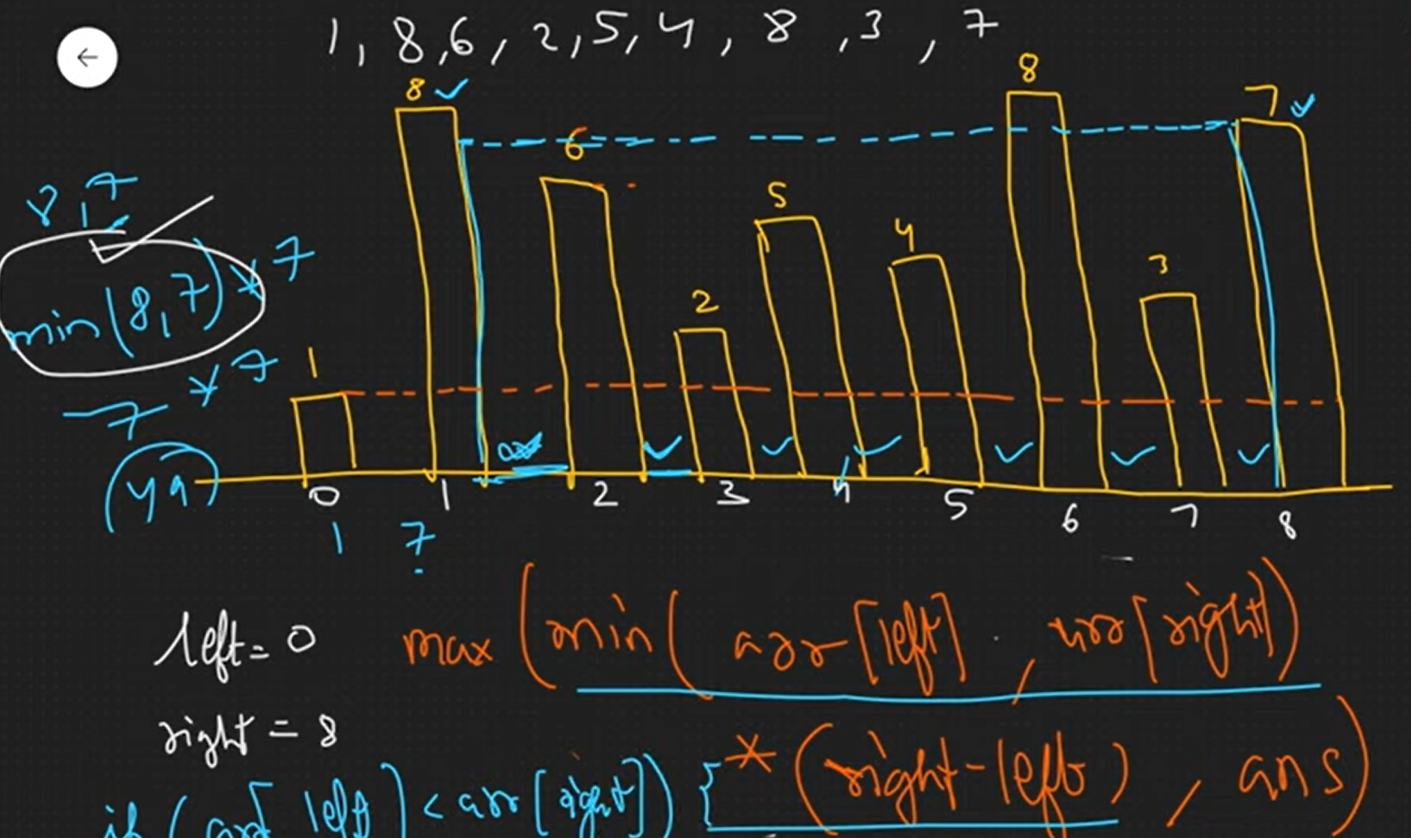 1, 8, 6, 2, 5, 4, 8, 3, 7
8 6 2 5 4 8 3 7
1
8, 7
min(8,7) * 7
7 * 7
(49)
0 1 2 3 4 5 6 7 8
1 7
left = 0
max (min( arr[left] , arr[right])
right = 8
* (right-left) , ans)
if (arr[left] < arr[right]) {